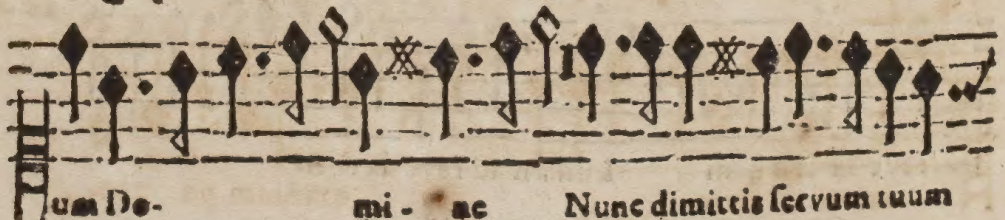 um Do- mi - ne Nunc dimittis servum tuum